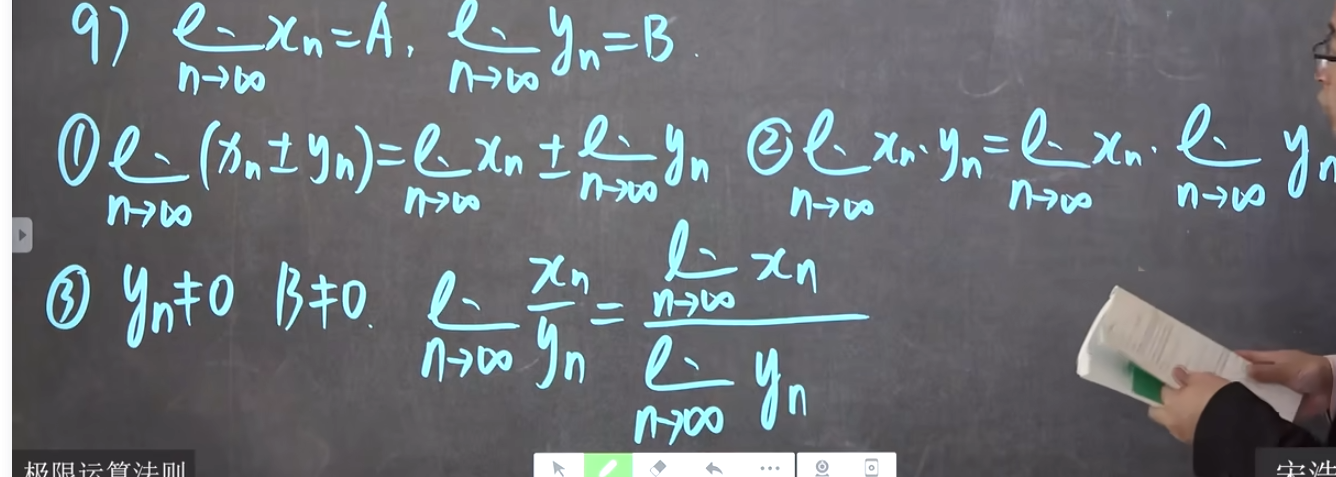 9) lim n→∞ xn=A, lim n→∞ yn=B.
① lim n→∞ (xn±yn)=lim n→∞ xn ± lim n→∞ yn ② lim n→∞ xn·yn=lim n→∞ xn·lim n→∞ yn
③ yn≠0 B≠0. lim n→∞ xn/yn = lim n→∞ xn / lim n→∞ yn
极限运算法则
宋浩